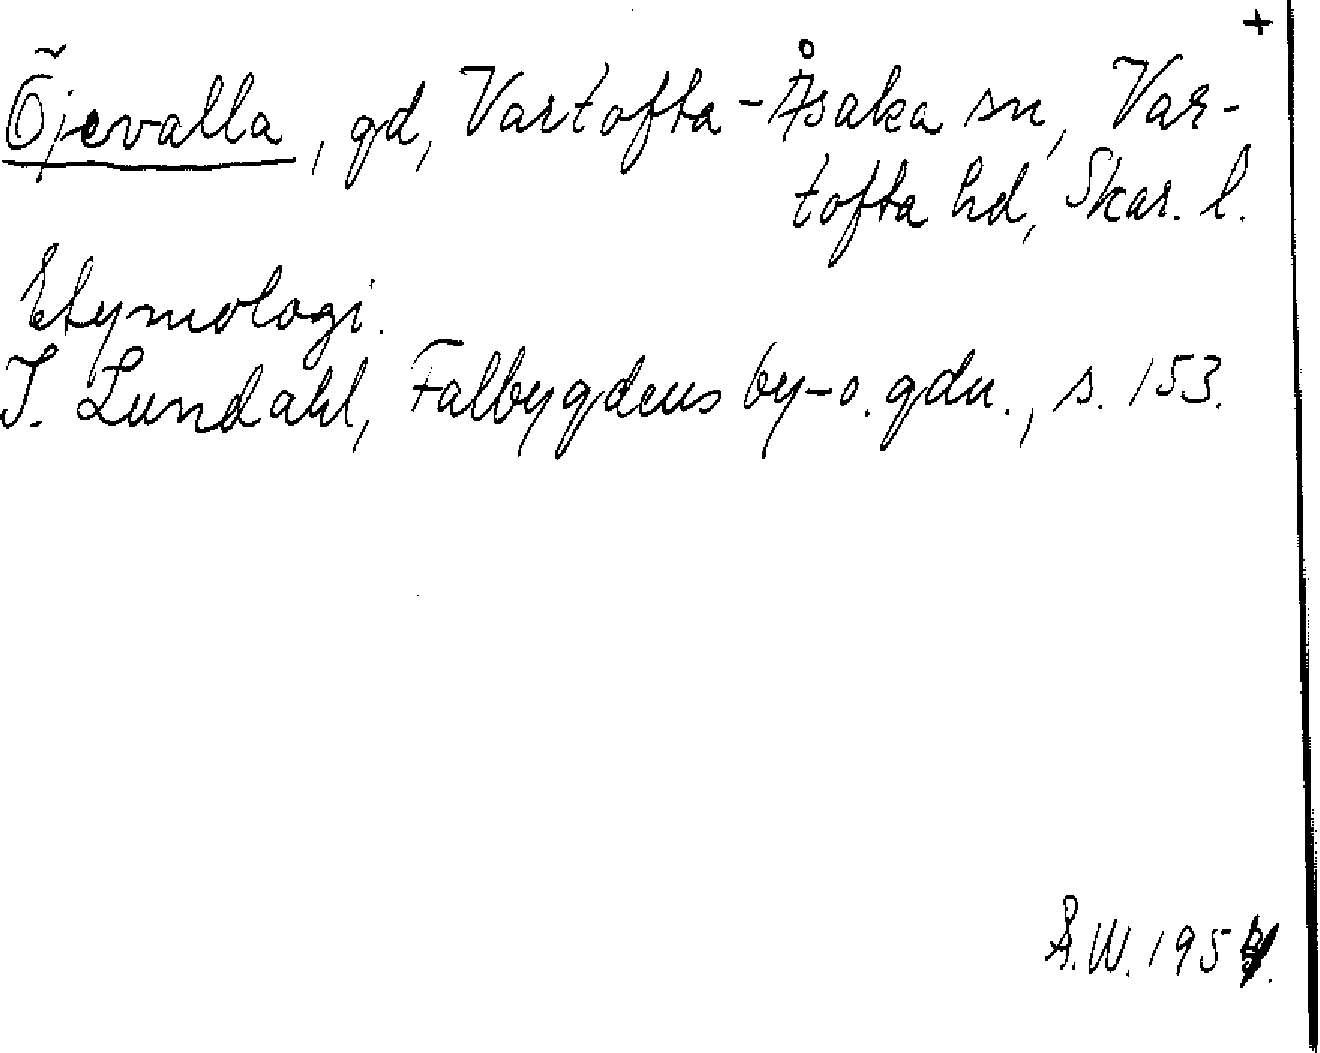 +
Öjevalla, gd, Vartofta-Åsaka sn, Var-
tofta hd, Skar. l.
Etymologi.
I. Lundahl, Falbygdens by- o. gdn., s. 153.
Å.W. 195